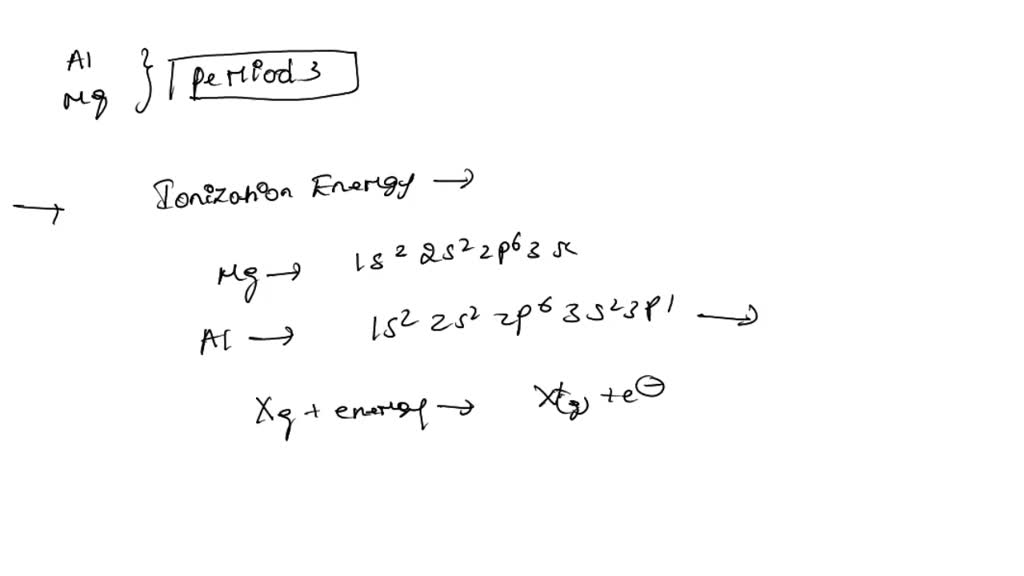 Al
Mg } Period 3
→ Ionization Energy →
Mg → 1s² 2s² 2p⁶ 3
Al → 1s² 2s² 2p⁶ 3s² 3p¹ →
Xg + energy → X⁺(g) + e⊖